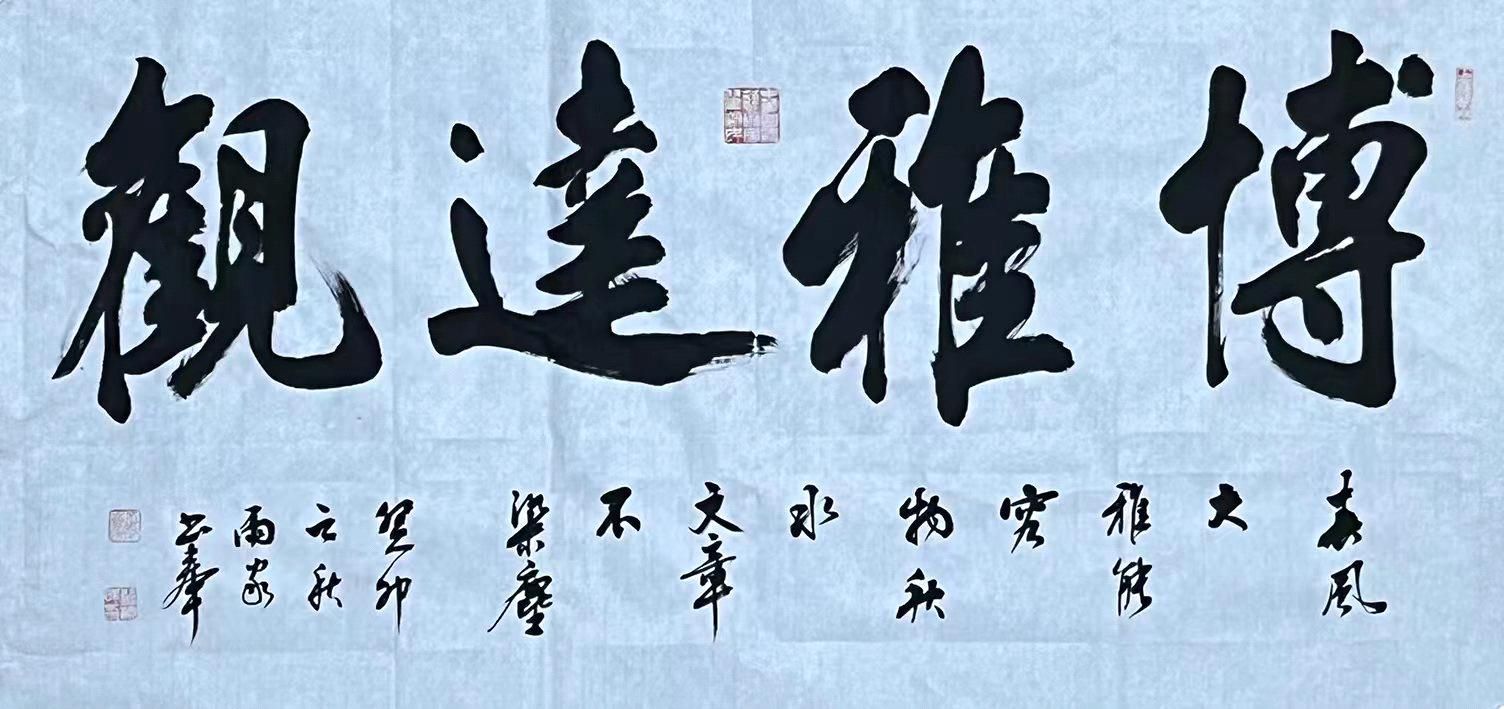 博雅達觀
春風
大
雅能
容
物秋
水
文章
不
染塵
癸卯
之秋
雨家
書奉